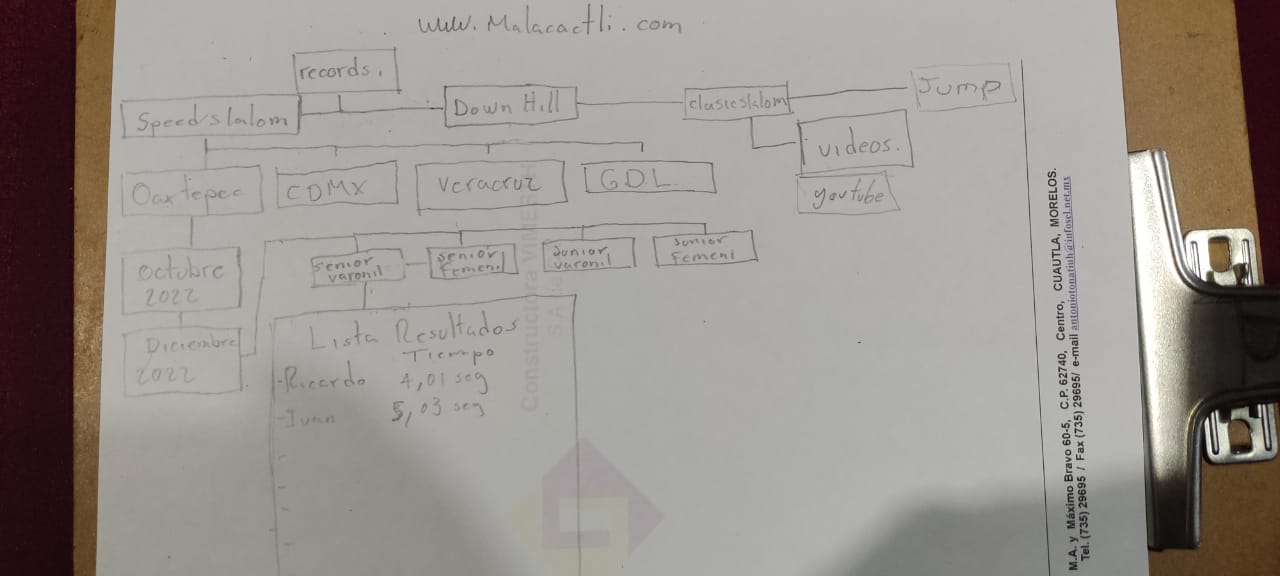 www.Malacactli.com
records.
Speedslalom
Down Hill
clasicslalom
Jump
videos.
youtube
Oaxtepec
CDMX
Veracruz
GDL
Octubre
2022
Diciembre
2022
senior
varonil
senior
femenil
Junior
varonil
Junior
Femenil
Lista Resultados
Tiempo
-Ricardo 4,01 seg
-Ivan 5,03 seg
Constructora
S.A.
M.A. y Máximo Bravo 60-5, C.P. 62740, Centro, CUAUTLA, MORELOS.
Tel. (735) 29695 / Fax (735) 29695/ e-mail antoniotonatiuh@infosel.net.mx